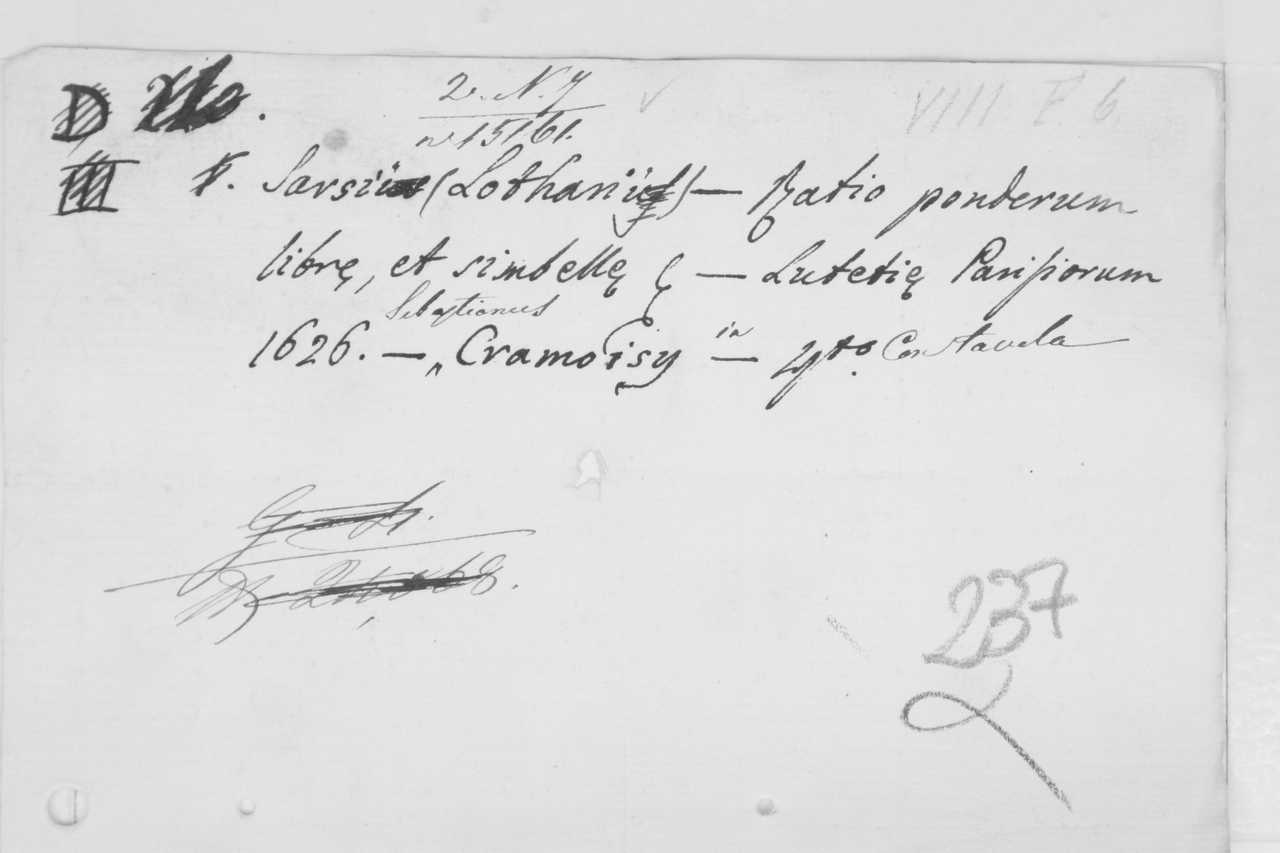 D
2. N. 7
VIII F 6
nº 15161.
Sarsii (Lotharii) — Ratio ponderum
librę, et simbellę — Lutetię Parisiorum
Sebastianus
1626. — Cramoisy in — 4to. Con tavola
237